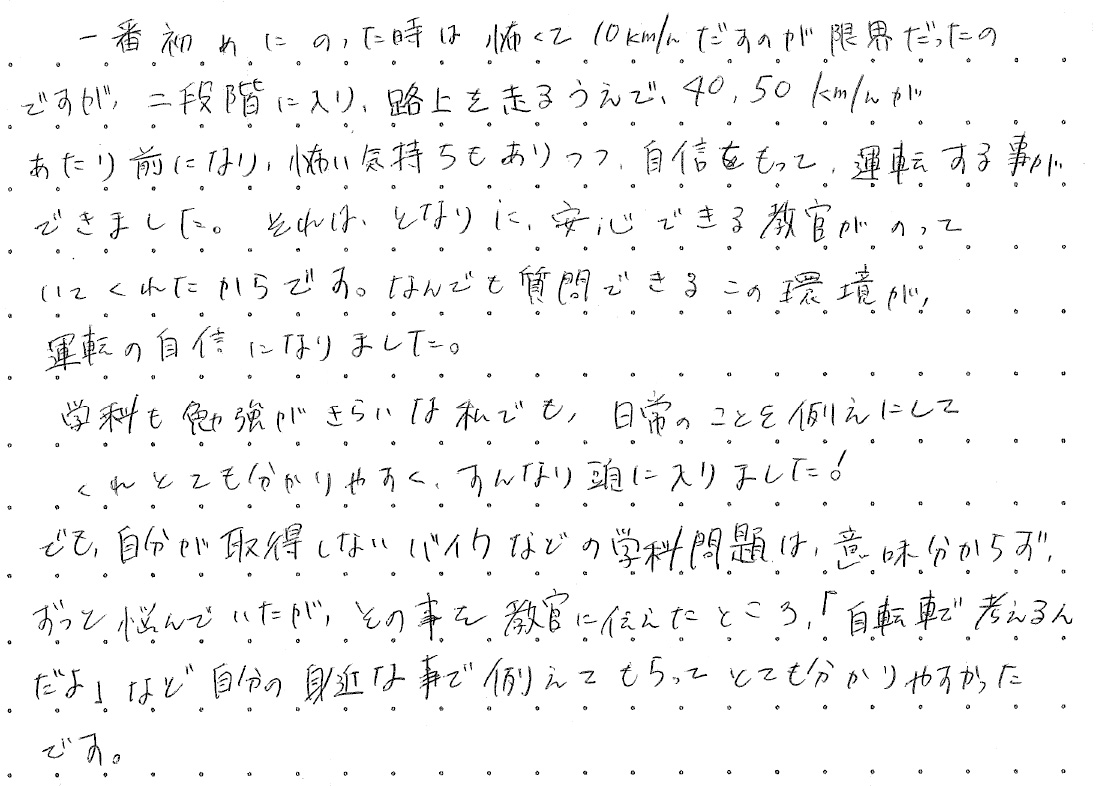 一番初めにのった時は、怖くて10km/hだすのが限界だったの
ですが、二段階に入り、路上を走るうえで、40,50km/hが
あたり前になり、怖い気持ちもありつつ、自信をもって、運転する事が
できました。それは、となりに、安心できる教官がのって
いてくれたからです。なんでも質問できるこの環境が、
運転の自信になりました。
学科も勉強がきらいな私でも、日常のことを例えにして
くれとても分かりやすく、すんなり頭に入りました!
でも、自分が取得しないバイクなどの学科問題は、意味分からず、
ずっと悩んでいたが、その事を教官に伝えたところ、「自転車で考えるん
だよ」など自分の身近な事で例えてもらってとても分かりやすかった
です。